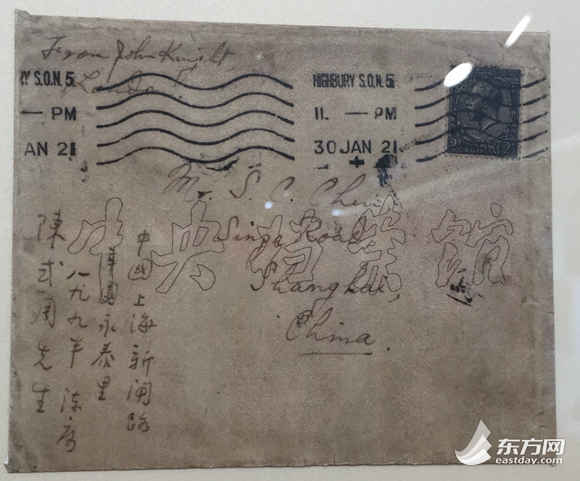 From John Knight,
London
RY S.O.N. 5
— PM
AN 21
HIGHBURY S.O.N. 5
11. — PM
30 JAN 21
Mr. S. C. Chen
Singa Road
Shanghai,
China.
中央档案馆
中国上海新闸路
園永泰里
八九九半陳寓
陳式周先生
东方网
eastday.com